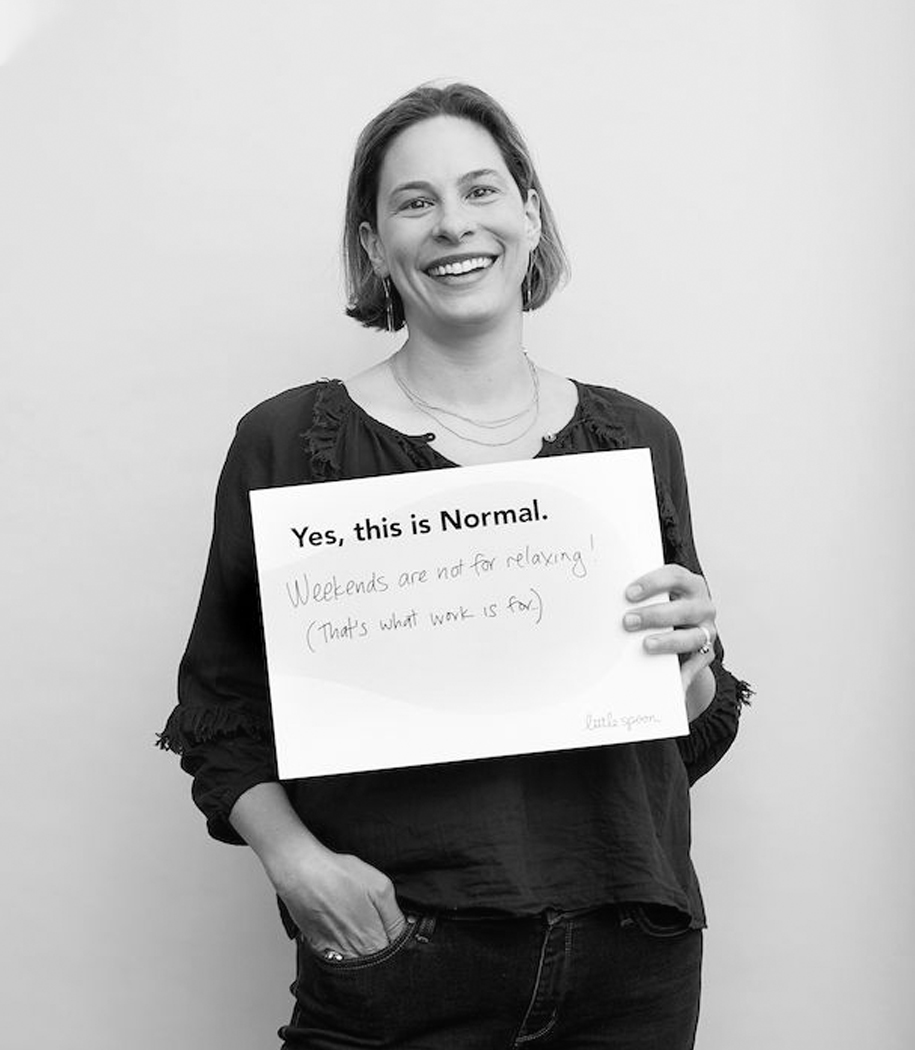 Yes, this is Normal.
Weekends are not for relaxing!
(That's what work is for.)
little spoon